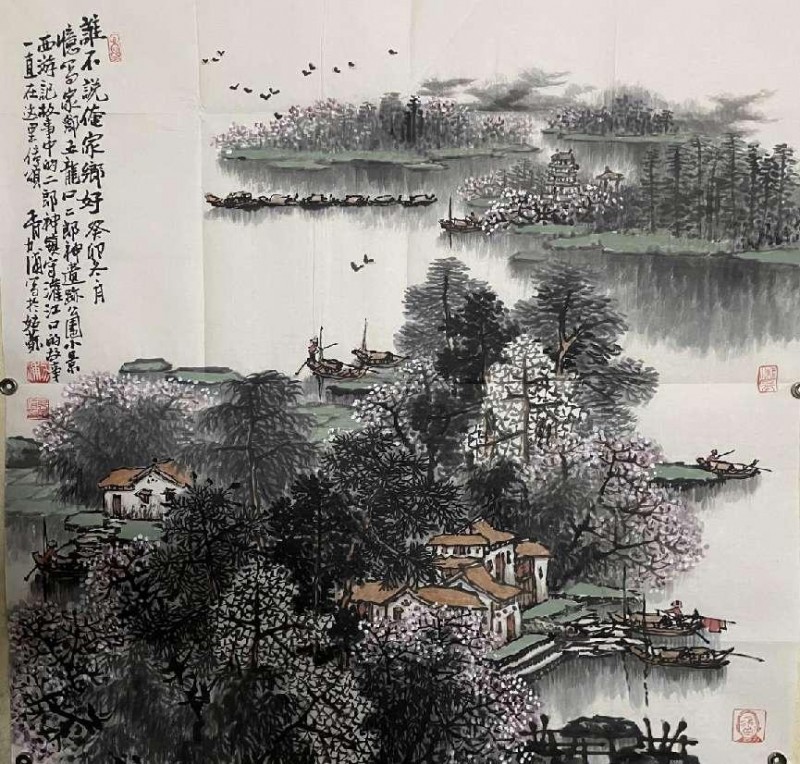 誰不說俺家鄉好 癸卯冬月
憶寫家鄉五龍口二郎神遺跡公園小景
西游記故事中的二郎神鎮守灌江口的故事
一直在這里傳頌 寫於姑蘇